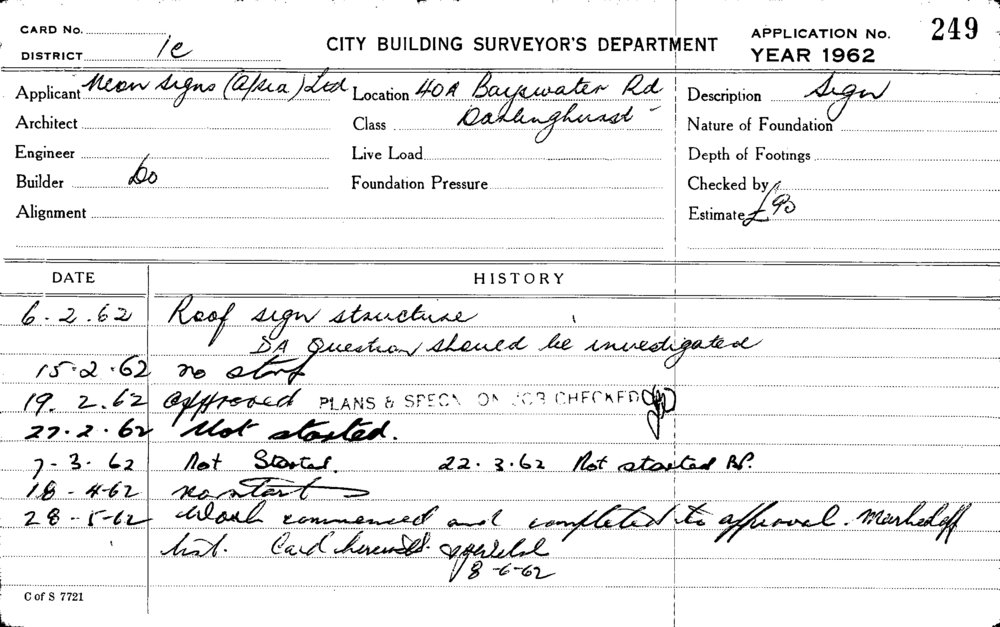 CARD No.
DISTRICT 1e
CITY BUILDING SURVEYOR'S DEPARTMENT
APPLICATION No. 249
YEAR 1962
Applicant Neon Signs (A/sia) Ltd
Location 40A Bayswater Rd
Description Sign
Architect
Class Darlinghurst
Nature of Foundation
Engineer
Live Load
Depth of Footings
Builder Do
Foundation Pressure
Checked by
Alignment
Estimate £90
DATE HISTORY
6.2.62 Roof sign structure
DA Question should be investigated
15.2.62 no start
19.2.62 approved PLANS & SPECN ON JOB CHECKED
27.2.62 Not started.
7-3-62 Not Started. 22.3.62 Not started
18-4-62 no start
28-5-62 Work commenced and completed to approval. Marked off
list. Card herewith.
8-6-62
C of S 7721